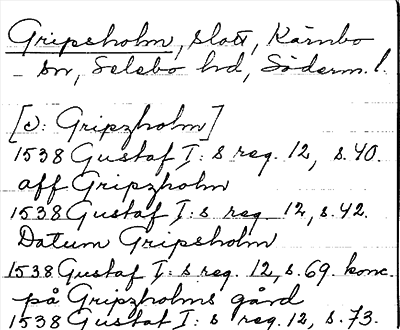 Gripsholm, slott, Kärnbo
sn, Selebo hd, Söderm. l.
[o: Gripzholm]
1538 Gustaf I:s reg. 12, s. 40.
aff Gripzholm
1538 Gustaf I:s reg 12, s. 42.
Datum Gripsholm
1538 Gustaf I:s reg. 12, s. 69. konc.
på Gripzholms gård
1538 Gustaf I:s reg. 12, s. 73.